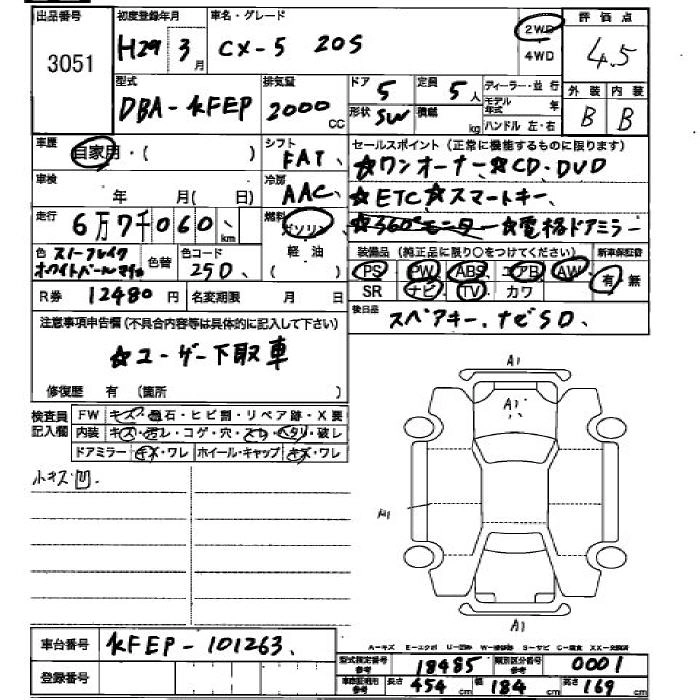 出品番号 初度登録年月 車名・グレード 評価点
3051 H29 3月 CX-5 20S 2WD 4WD 4.5
型式 排気量 ドア 5 定員 5人 ディーラー・並行 外装 内装
DBA-KFEP 2000CC 形状 SW 積載 kg モデル年式 年 ハンドル 左・右 B B
車歴 自家用・( ) シフト FAT、 セールスポイント(正常に機能するものに限ります)
☆ワンオーナー、☆CD・DVD
車検 年 月( 日) 冷房 AAC、 ☆ETC☆スマートキー、
走行 6万7千060、km 燃料 ガソリン 軽油 ☆360°モニター ☆電格ドアミラー
色 スノーフレイクホワイトパールマイカ 色替 色コード 25D、 装備品 (純正品に限り○をつけてください) 新車保証書
PS PW ABS エアB AW 有・無
R券 12480円 名変期限 月 日 SR ナビ TV カワ
注意事項申告欄(不具合内容等は具体的に記入して下さい) 後日品 スペアキー、ナビSD、
☆ユーザー下取車
修復歴 有 (箇所 )
検査員記入欄 FW キズ・飛石・ヒビ割・リペア跡・X要
内装 キズ・汚レ・コゲ・穴・スレ・ヘタリ・破レ
ドアミラー キズ・ワレ ホイール・キャップ キズ・ワレ
小キズ凹
A1
A1
A1
A1
車台番号 KFEP-101263、
A-キズ E-エクボ U-凹み W-修理跡 S-サビ C-腐食 XX-交換済
登録番号 型式指定番号 参考 18485 類別区分番号 参考 0001
車庫証明用 参考 長さ 454cm 幅 184cm 高さ 169cm